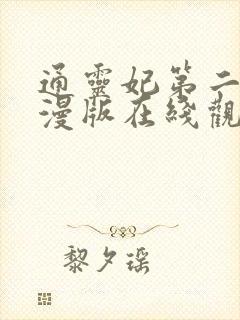 通靈妃第二
漫版在綫觀
黎夕瑶